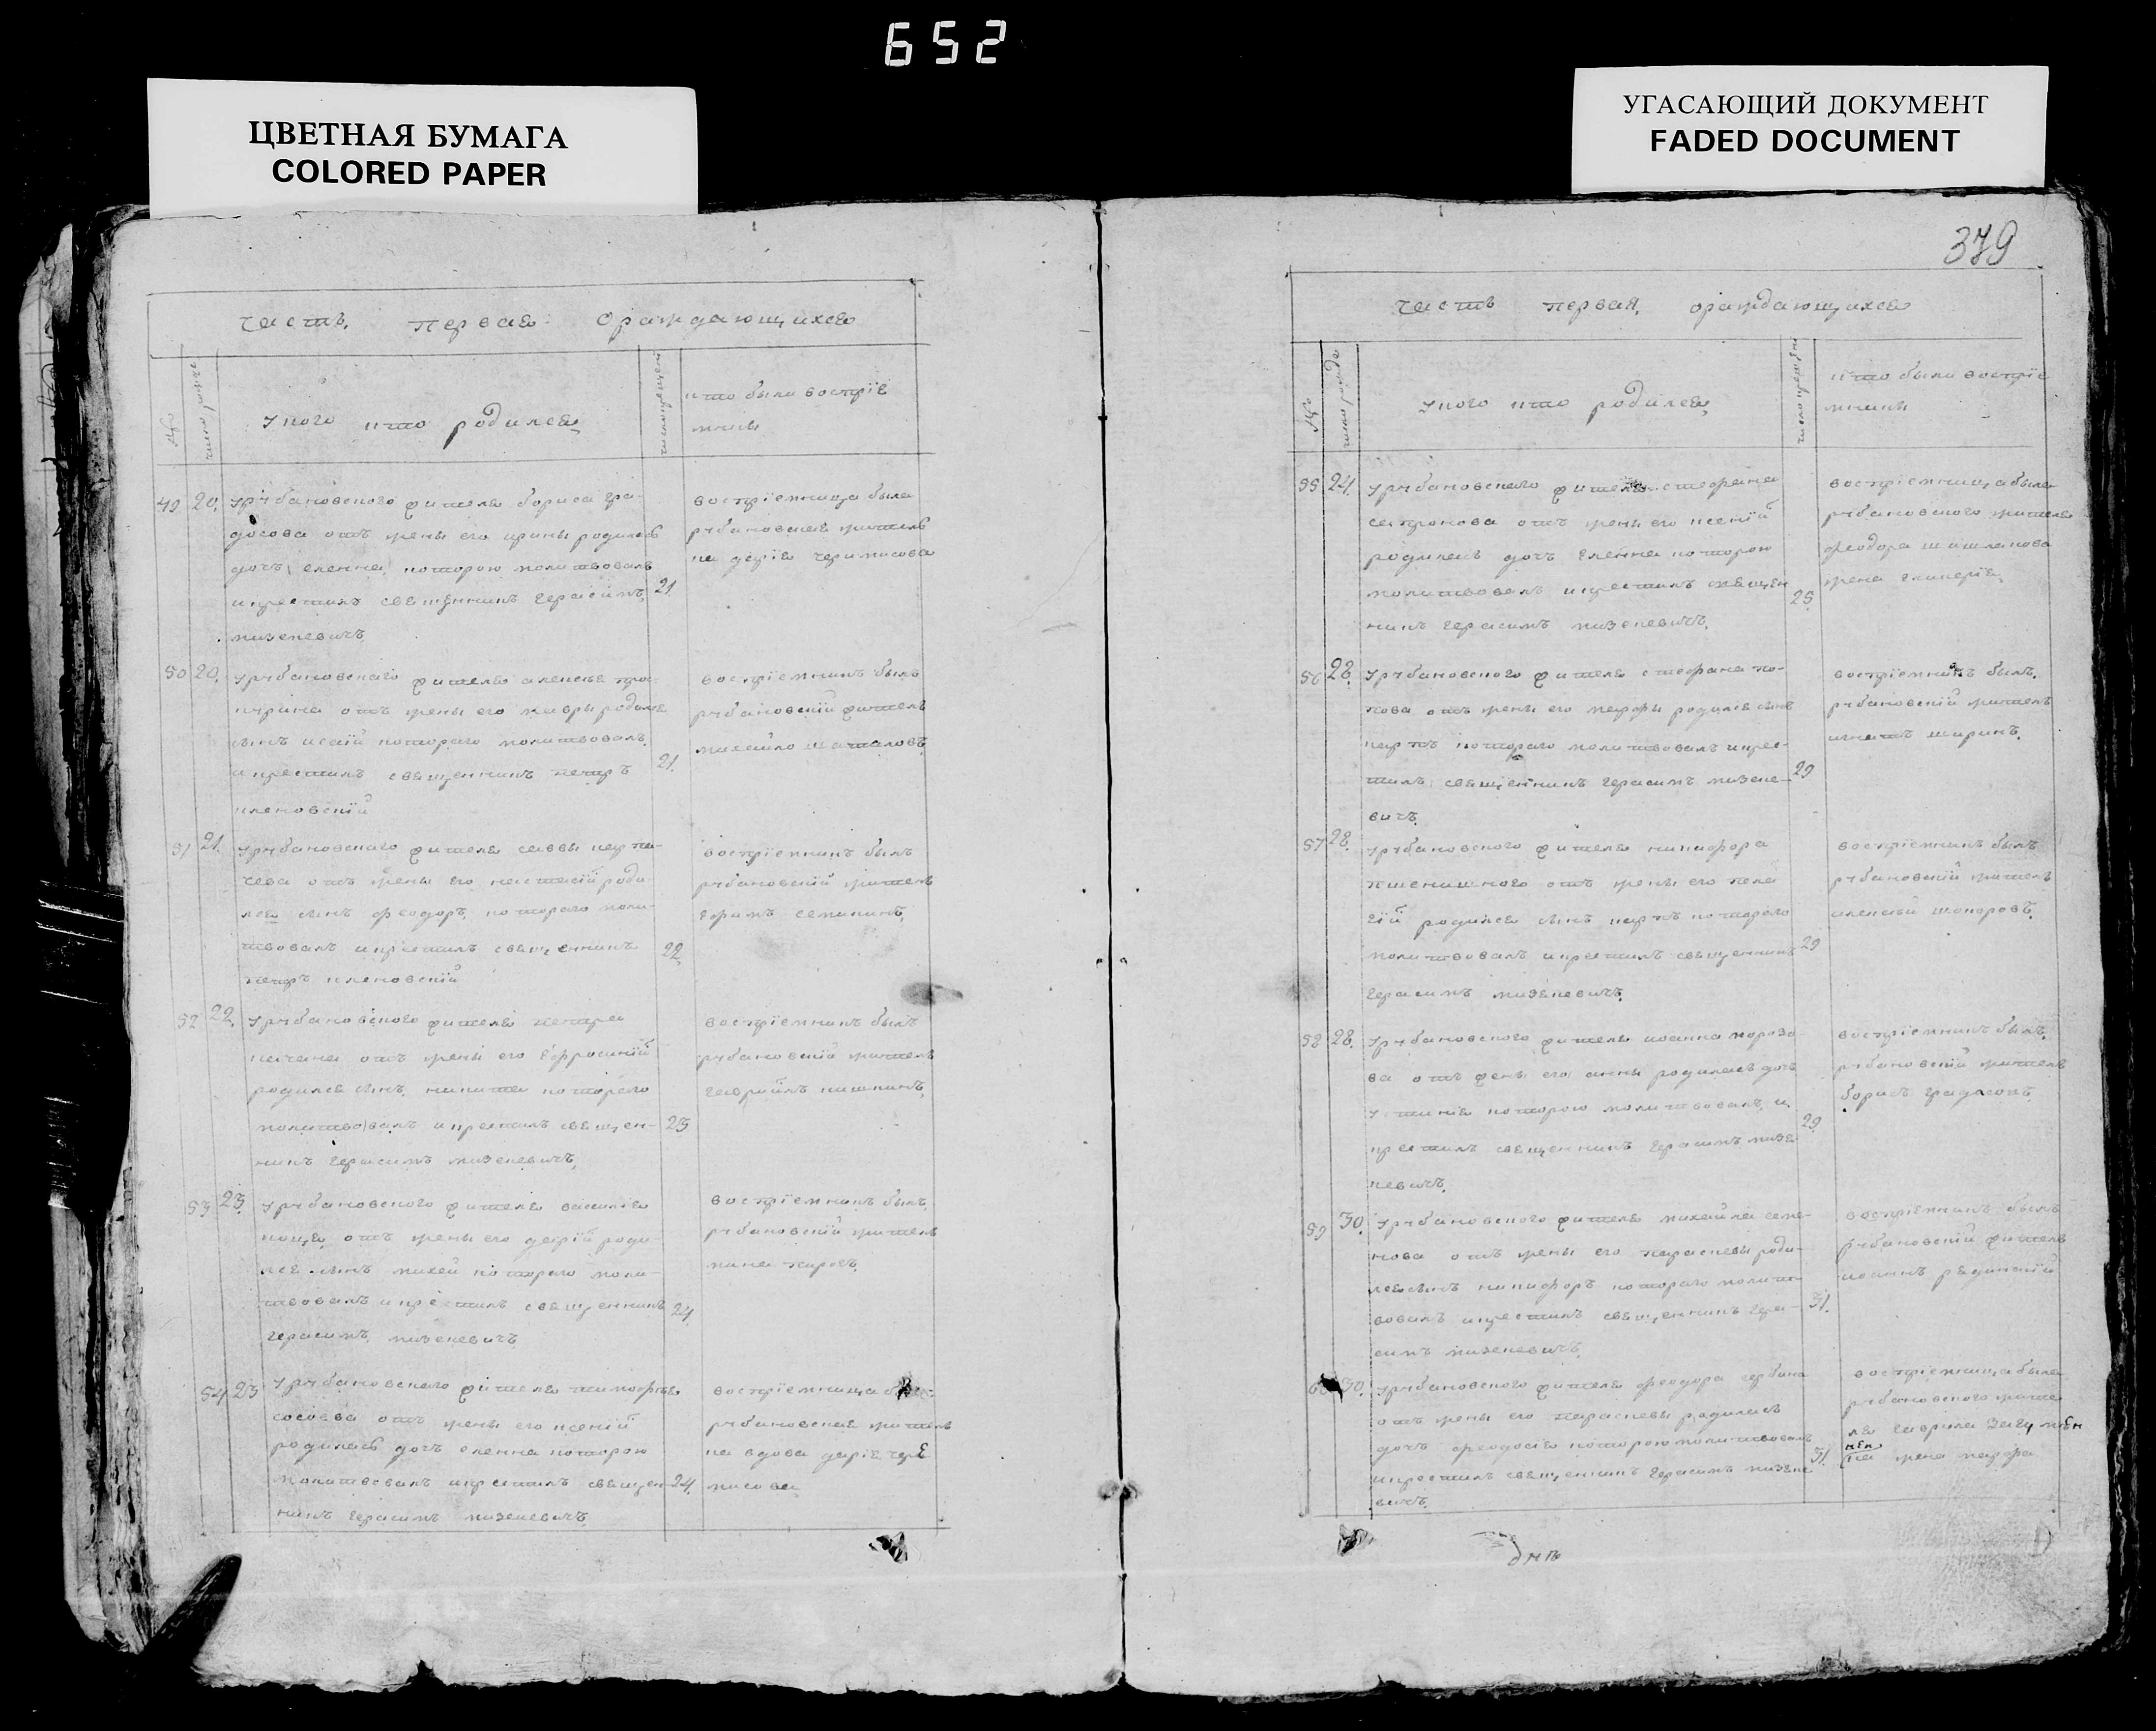 652
ЦВЕТНАЯ БУМАГА
COLORED PAPER
УГАСАЮЩИЙ ДОКУМЕНТ
FADED DOCUMENT
379
часть первая ораждающихся
У кого кто родился
кто были воспріе
мники
49 20. У рубановского жителя бориса гра-
досова отъ жены его ирины родилась
дочь еленна которою молитвовалъ
и крестилъ священникъ герасимъ 21
мизекевичъ
воспріемница была
рубановская житель
ка дарія черикисова
50 20. У рубановскаго жителя алексѣя
отъ жены его мавры родился
сынъ исаій котораго молитвовалъ
и крестилъ священникъ петръ 21.
кленовскій
воспріемникъ былъ
рубановскій житель
михайло шаталовъ
51 21. У рубановскаго жителя саввы
отъ жены его настасій роди-
лся сынъ феодоръ котораго моли-
твовалъ и крестилъ священникъ 22
петръ кленовскій
воспріемникъ былъ
рубановскій житель
ефимъ семикинъ
52 22. У рубановского жителя петра
качана отъ жены его Ефросиніи
родился сынъ никита котораго
молитвовалъ и крестилъ священ- 23
никъ герасимъ мизекевичъ
воспріемникъ былъ
рубановскій житель
гавріилъ кишкинъ
53 23. У рубановского жителя василія
отъ жены его дарій роди-
лся сынъ михей котораго моли-
твовалъ и крестилъ священникъ 24
герасимъ мизекевичъ
воспріемникъ былъ
рубановскій житель
54 23 У рубановскаго жителя тимофея
сосоева отъ жены его ксеній
родилась дочь еленна которою
молитвовалъ и крестилъ священ- 24.
никъ герасимъ мизекевичъ
воспріемница
рубановская житель
ка вдова дарія чере
мисова
часть первая ораждающихся
У кого кто родился
кто были воспріе
мники
55 24. У рубановскаго жителя стефана
сапронова отъ жены его ксеній
родилась дочь Еленна которою
молитвовалъ и крестилъ священ 25
никъ герасимъ мизекевичъ
воспріемница была
рубановского жителя
феодора шашлакова
жена гликерія
56 28. У рубановского жителя стефана по-
пова отъ жены его марфы родился сынъ
карпъ котораго молитвовалъ и крес-
тилъ священникъ герасимъ мизеке- 29
вичъ
воспріемникъ былъ
рубановскій житель
игнатъ ширинъ
57 28. У рубановского жителя никифора
пшенишного отъ жены его пела
гій родился сынъ карпъ котораго
молитвовалъ и крестилъ священникъ 29
герасимъ мизекевичъ
воспріемникъ былъ
рубановскій житель
алексѣй шопоровъ
58 28. У рубановского жителя иоанна морозо-
ва отъ жены его анны родилась дочь
устинія которою молитвовалъ и 29
крестилъ священникъ герасимъ мизе
кевичъ
воспріемникъ былъ
рубановскій житель
борисъ градасовъ
59 30. У рубановского жителя михайла семе-
нова отъ жены его парасковы роди-
лся сынъ никифоръ котораго молит-
вовалъ и крестилъ священникъ гера- 31.
симъ мизекевичъ
воспріемникъ былъ
рубановскій житель
иоаннъ
60 30. У рубановского жителя феодора
отъ жены его парасковы родилась
дочь феодосія которою молитвовалъ 31.
и крестилъ священникъ герасимъ мизеке
вичъ
воспріемница была
рубановского жите
ля гаврила
жена марфа